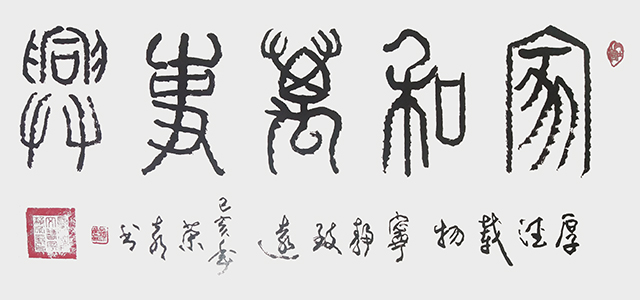 家和萬事興
厚德載物 寧靜致遠 己亥年 榮 書